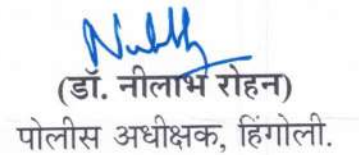 (डॉ. नीलाभ रोहन)
पोलीस अधीक्षक, हिंगोली.